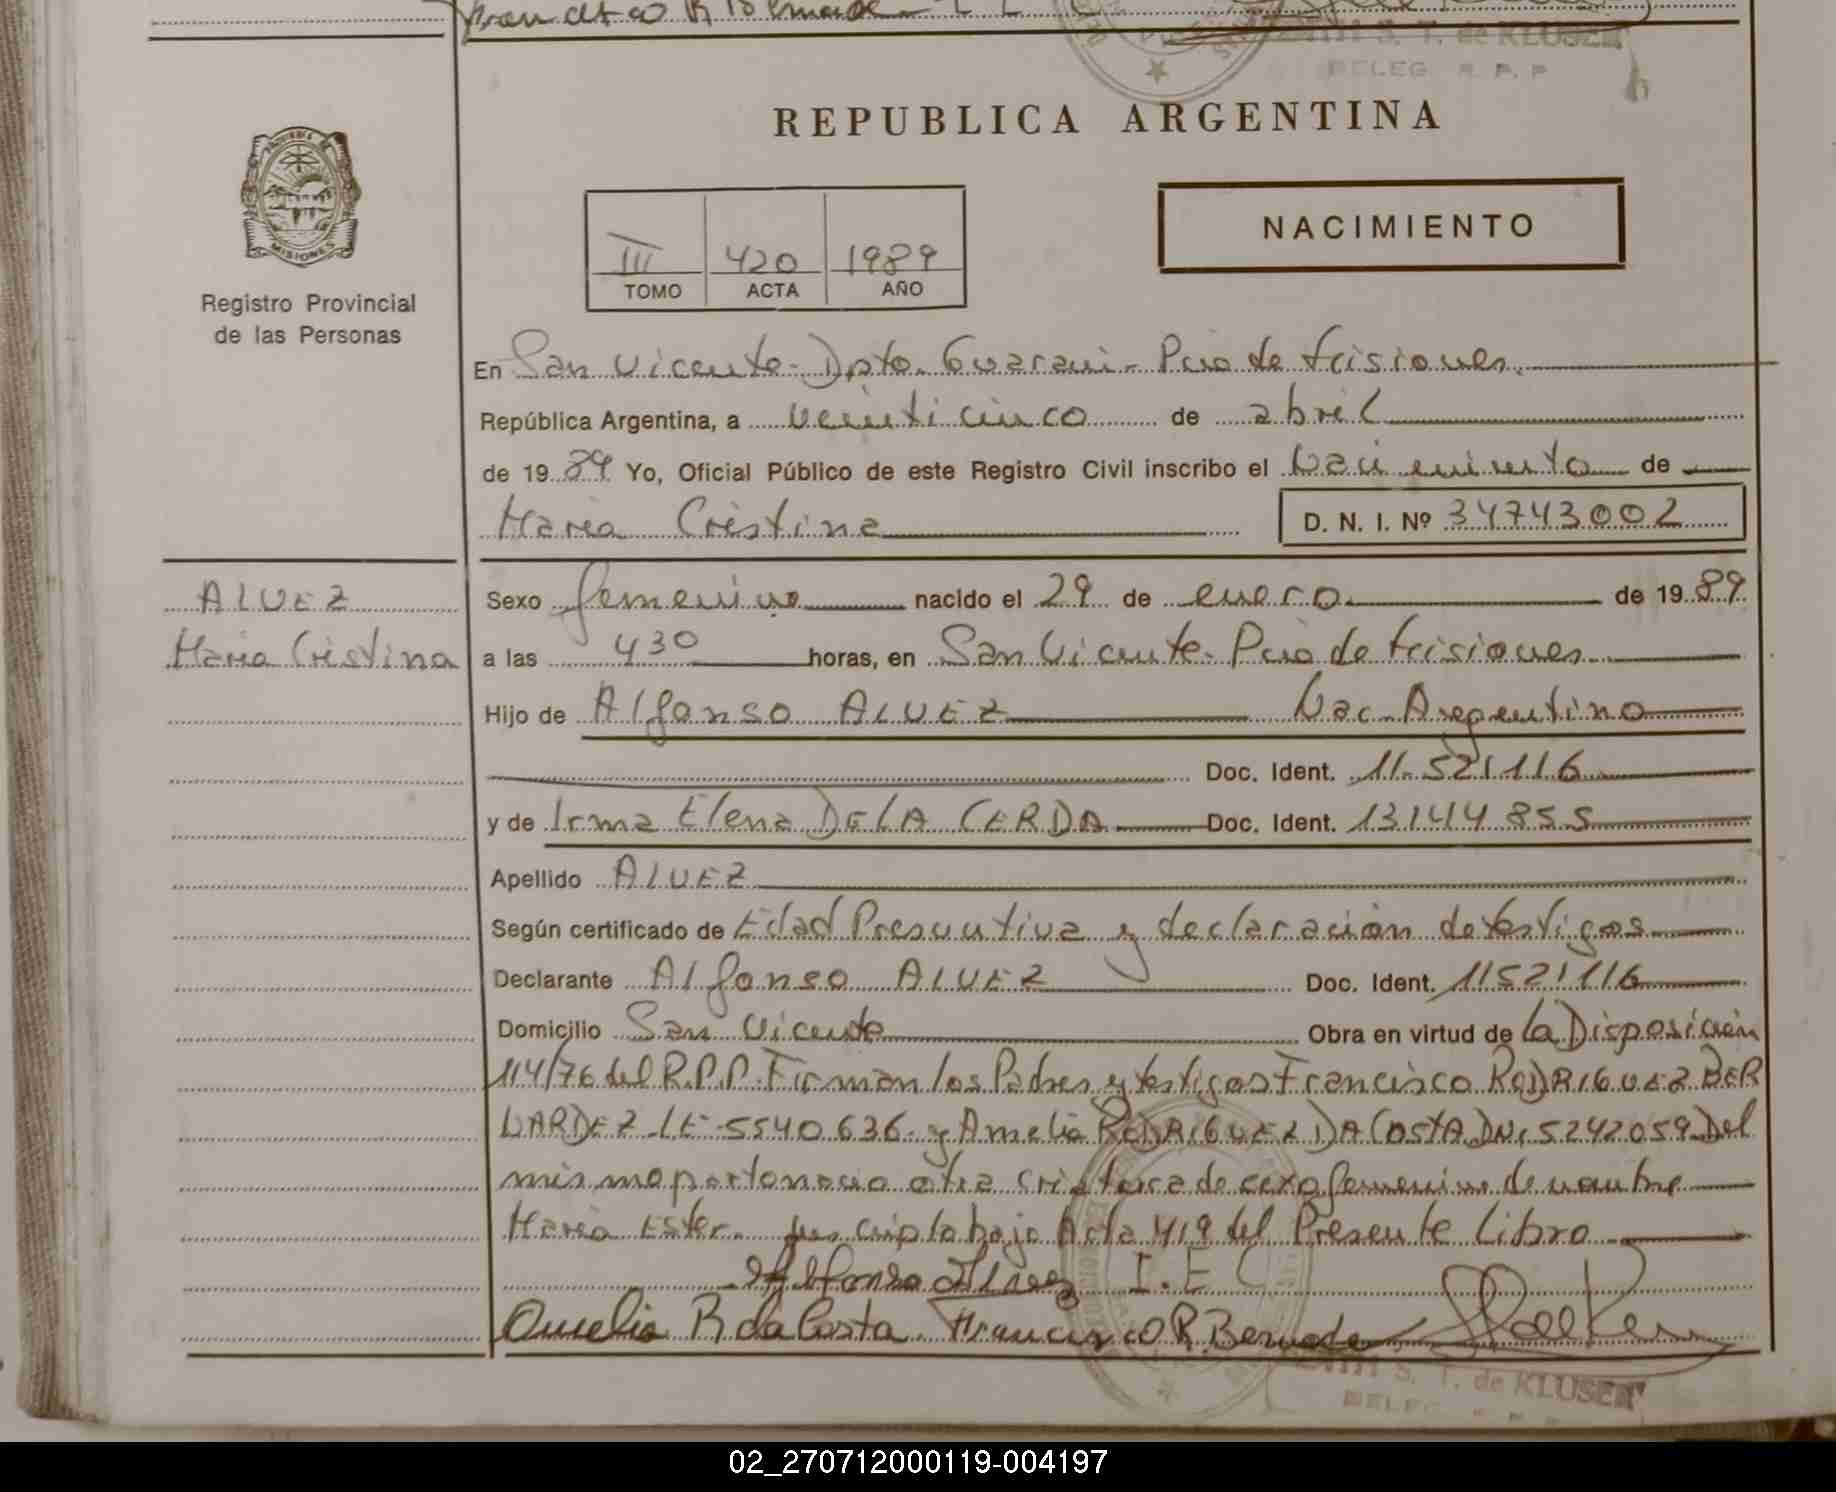 S. T. de KLUSER
DELEG. R. P. P.
REPUBLICA ARGENTINA
PROVINCIA DE
MISIONES
Registro Provincial
de las Personas
III 420 1989
TOMO ACTA AÑO
NACIMIENTO
En San Vicente - Dpto. Guarani - Pcia de Misiones.
República Argentina, a veinticinco de abril
de 1989 Yo, Oficial Público de este Registro Civil inscribo el Nacimiento de
Maria Cristina D. N. I. Nº 34743002
ALVEZ
Maria Cristina
Sexo femenino nacido el 29 de enero de 1989
a las 430 horas, en San Vicente - Pcia de Misiones
Hijo de Alfonso ALVEZ Nac. Argentino
Doc. Ident. 11.521116
y de Irma Elena DE LA CERDA Doc. Ident. 13144855
Apellido ALVEZ
Según certificado de Edad Presuntiva y declaración de testigos
Declarante Alfonso ALVEZ Doc. Ident. 11521116
Domicilio San Vicente Obra en virtud de la Disposición
114/76 del R.P.P. Firman los Padres y testigos Francisco RODRIGUEZ BER
NARDEZ LE 5540636 y Amelia RODRIGUEZ DA COSTA DNI 5242059 Del
mismo parto nacio otra criatura de sexo femenino de nombre
Maria Ester inscripta bajo Acta 419 del Presente Libro
Alfonso Alvez I. E C
Amelia R da Costa Francisco R. Bernarde
S. T. de KLUSER
DELEG
02_270712000119-004197